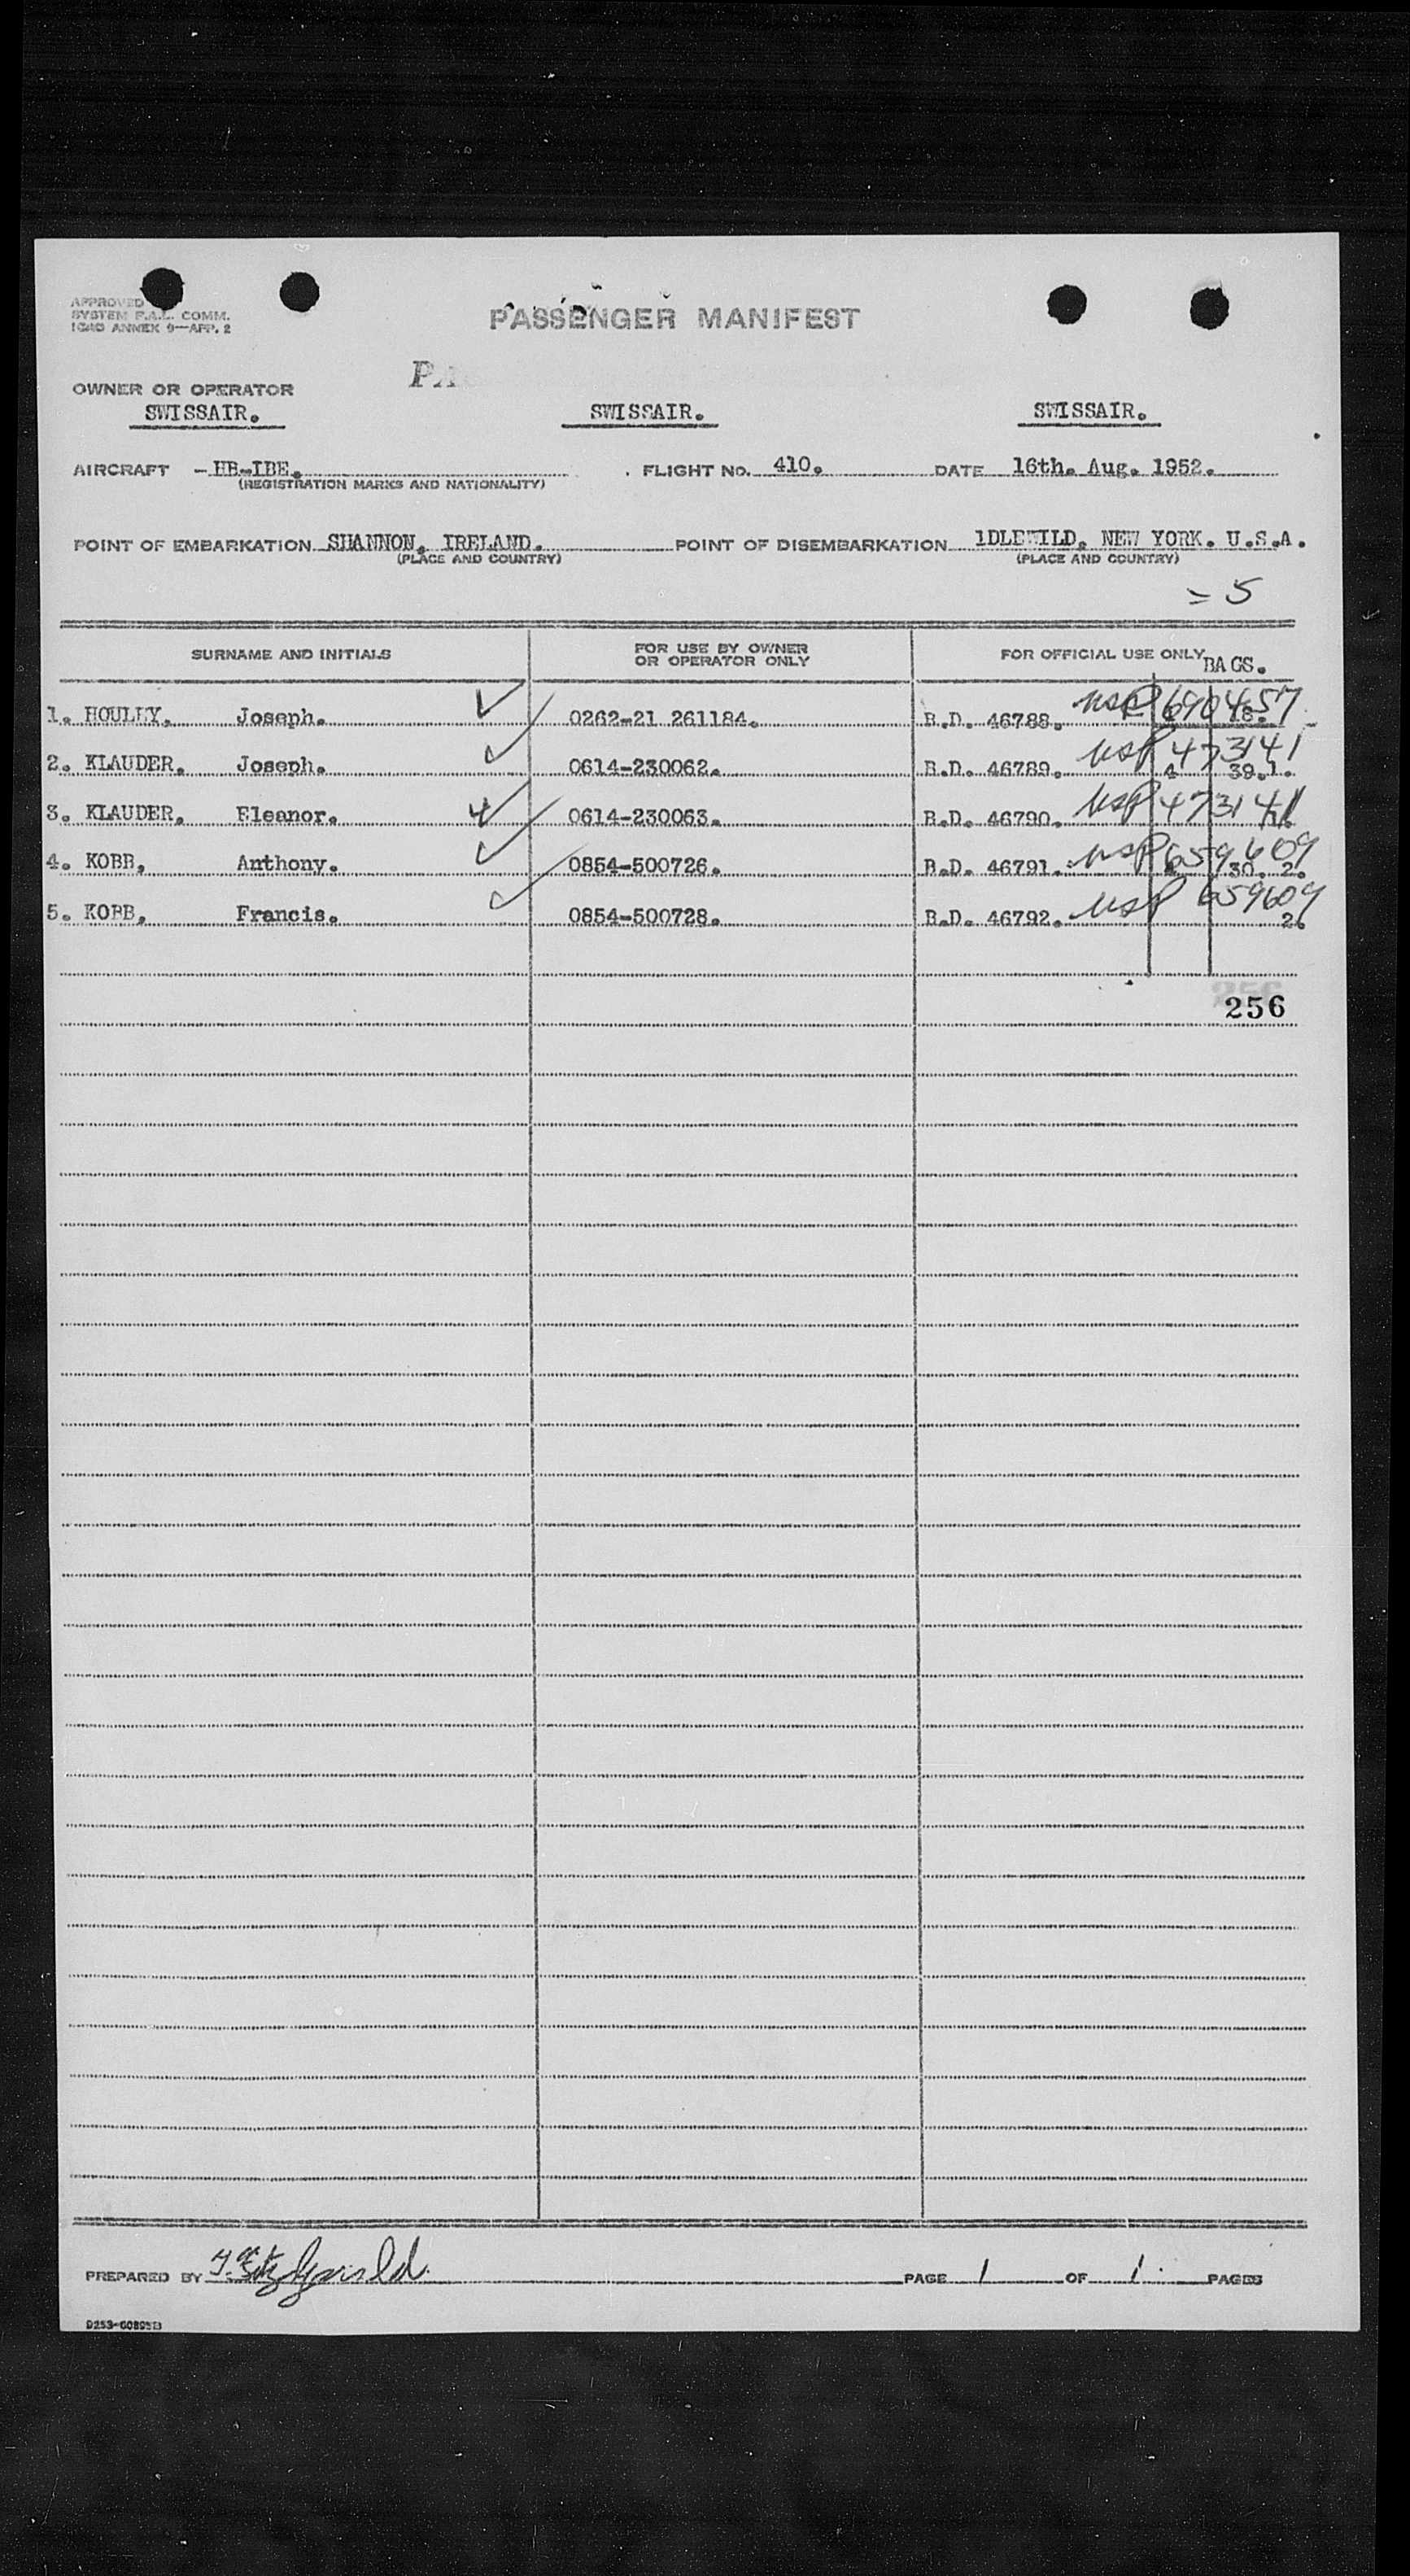 APPROVED
SYSTEM F.A.L. COMM.
ICAO ANNEX 9—APP. 2
PASSENGER MANIFEST
PA
OWNER OR OPERATOR
SWISSAIR. SWISSAIR. SWISSAIR.
AIRCRAFT - HB-IBE. FLIGHT No. 410. DATE 16th. Aug. 1952.
(REGISTRATION MARKS AND NATIONALITY)
POINT OF EMBARKATION SHANNON, IRELAND. POINT OF DISEMBARKATION 1DLEWILD, NEW YORK. U.S.A.
(PLACE AND COUNTRY) (PLACE AND COUNTRY)
= 5
SURNAME AND INITIALS FOR USE BY OWNER OR OPERATOR ONLY FOR OFFICIAL USE ONLY BAGS.
1. HOULEY, Joseph. 0262-21 261184. B.D. 46788. USP 690457 18.
2. KLAUDER, Joseph. 0614-230062. B.D. 46789. USP 473141 4 39. 1.
3. KLAUDER, Eleanor. 0614-230063. B.D. 46790. USP 473141
4. KOBB, Anthony. 0854-500726. B.D. 46791. USP 659609 30. 2.
5. KOBB, Francis. 0854-500728. B.D. 46792. USP 659609 2.
256
PREPARED BY Fitzgerald. PAGE 1 OF 1. PAGES